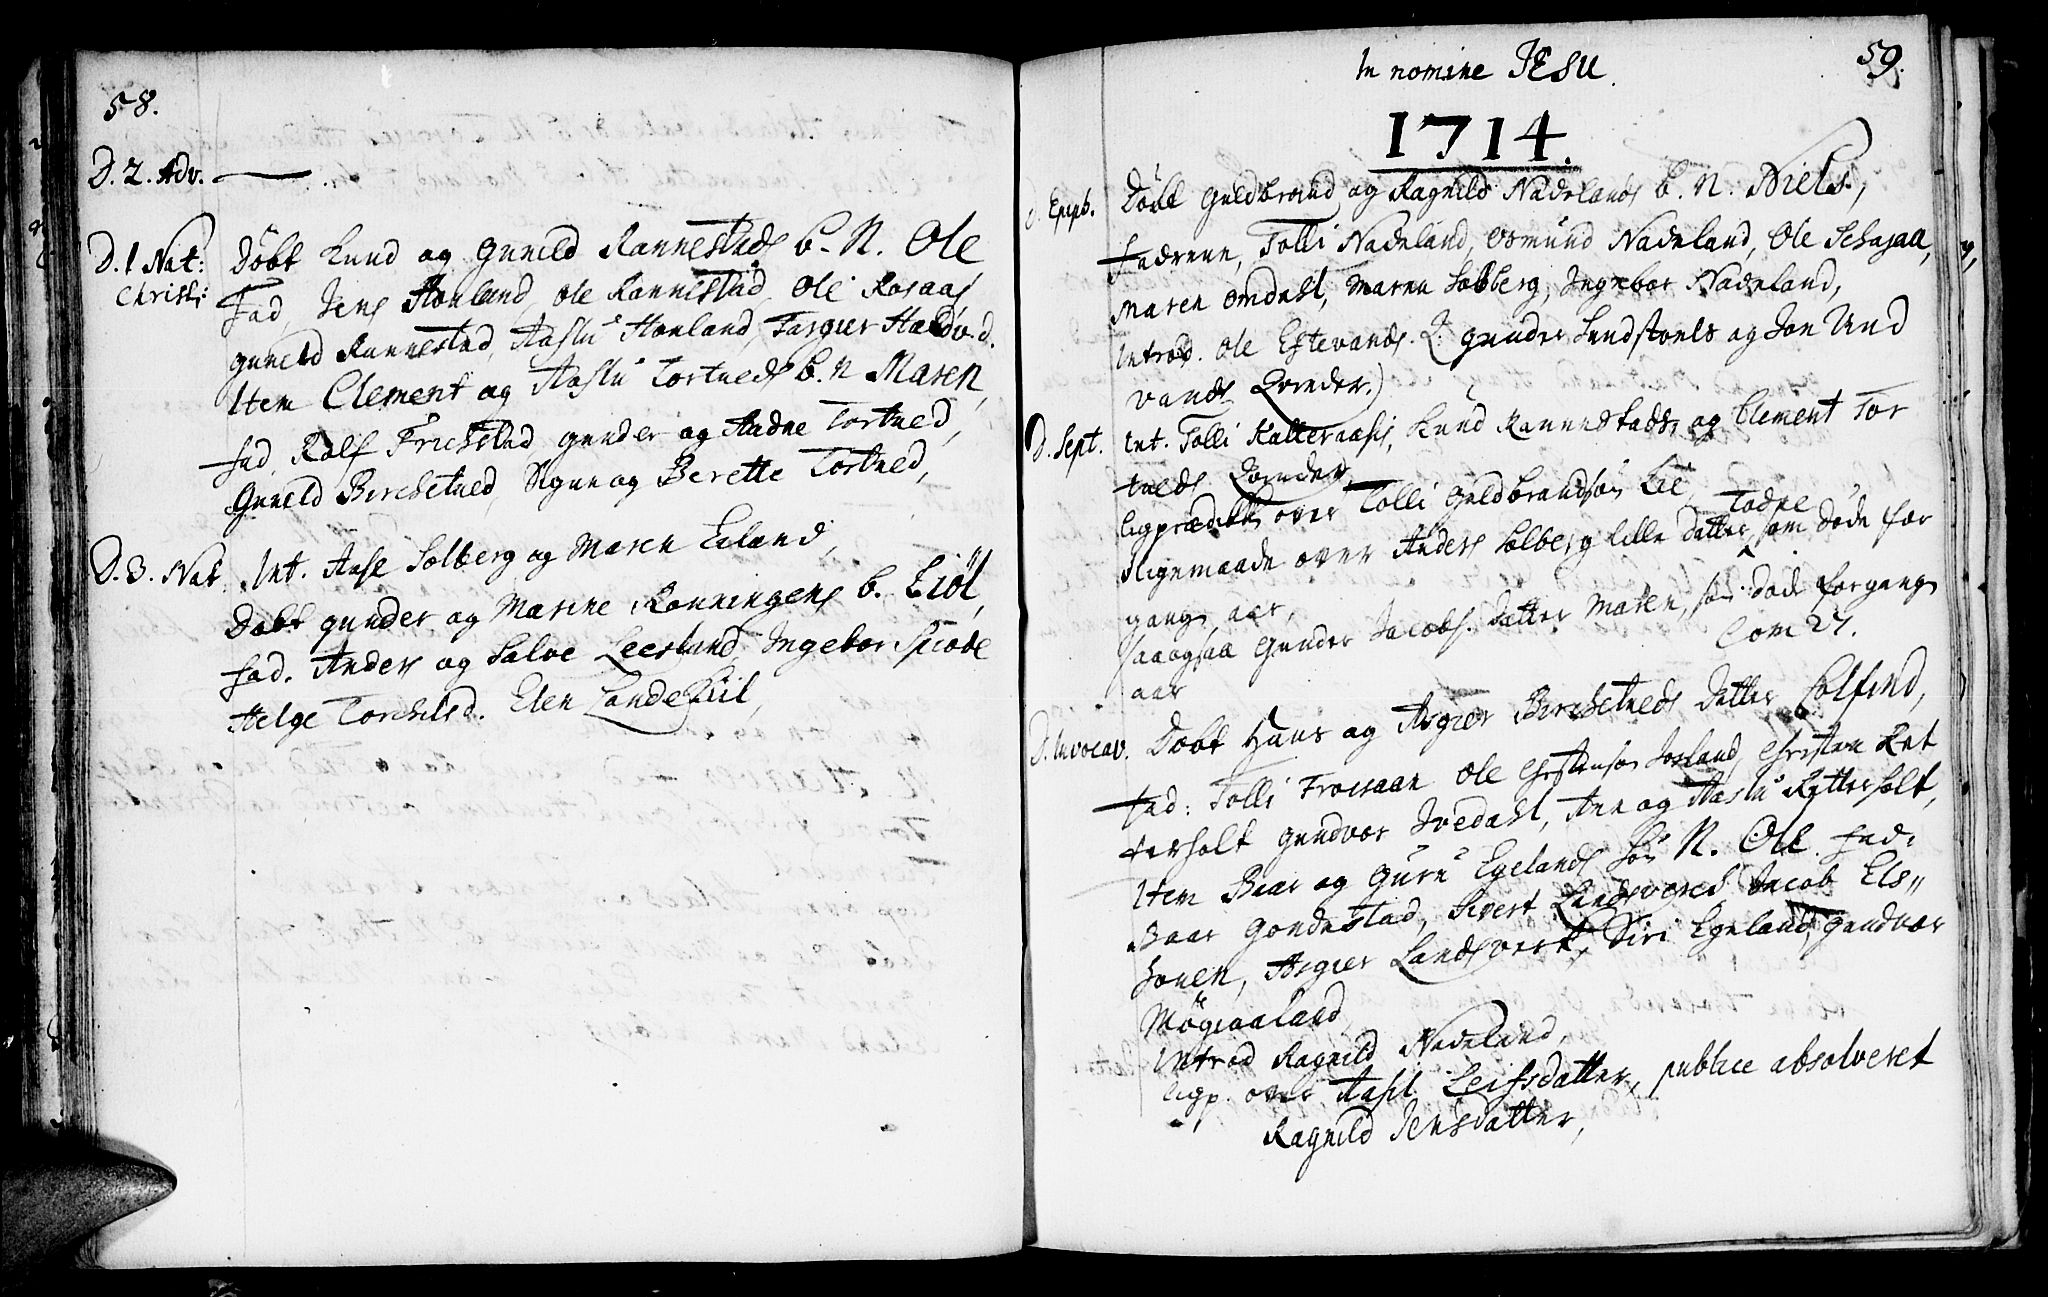 58.
D. 2. Adv. —
D. 1 Nat: Döbt Knud og Gunild Rannestads b. N. Ole
Christi: Fad, Jens Honland, Ole Rannestad, Ole Rosaas,
Gunild Rannestad, Aaslu Honland, Targier Haldv.d.
Item Clement og Aaslu Tortveds b. N Maren,
fad, Rolf Frichstad Gunder og Andne Tortved,
Gunild Birchetved, Signe og Berette Tortved,
D. 3. Nat. Int. Aase Solberg og Maren Eiland,
Döbt Gunder og Marine Ronningens b. Eiöl,
fad. Anders og Salve Leesland, Ingebor
Helge Torchilsd. Elen Landekiil,
59.
In nomine JESU.
1714.
D. Epiph. Döbt Guldbrand og Ragnild Nadelands b. N. Niels,
fadrene, Tolli Nadeland, Osmund Nadeland, Ole Schajaa,
Maren Omdahl, Maren Solberg, Ingebor Nadeland,
Introd. Ole Estevands. Gunder Sundstoels og Jon Und
vands Qvinder.)
D. Sept. Int. Tolli Kalleraases, Knud Rannestads, og Clement Tor
tveds Qvinder,
ligprædiken over Tolli Guldbrandsøn Lie, Todne
ligemaade over Anders Solberg lille datter, som döde for
gangs aar,
saaogsaa Gunder Jacobs. datter Maren, som döde forgangs
aar Com 21.
D. Invocav. Döbt Hans og Asgier Birchetveds datter Colfind,
fad: Tolli Froisaan Ole Christensön Josland, Christen Ret
terholt Gundvor Ivedahl, Ann og Aaslu Retterholt,
Item Baar og Guru Egelands sön N. Ole. fad:
Baar Gondestad, Sivert Landsverch Jacob Els,,
houen, Asgier Landsverk, Siri Egeland, Gundvor
Mögeaaland,
Introd Ragnild Nadeland,
Ligp. over Aasil Leifsdatter, publice absolveret
Ragnild Jensdatter,